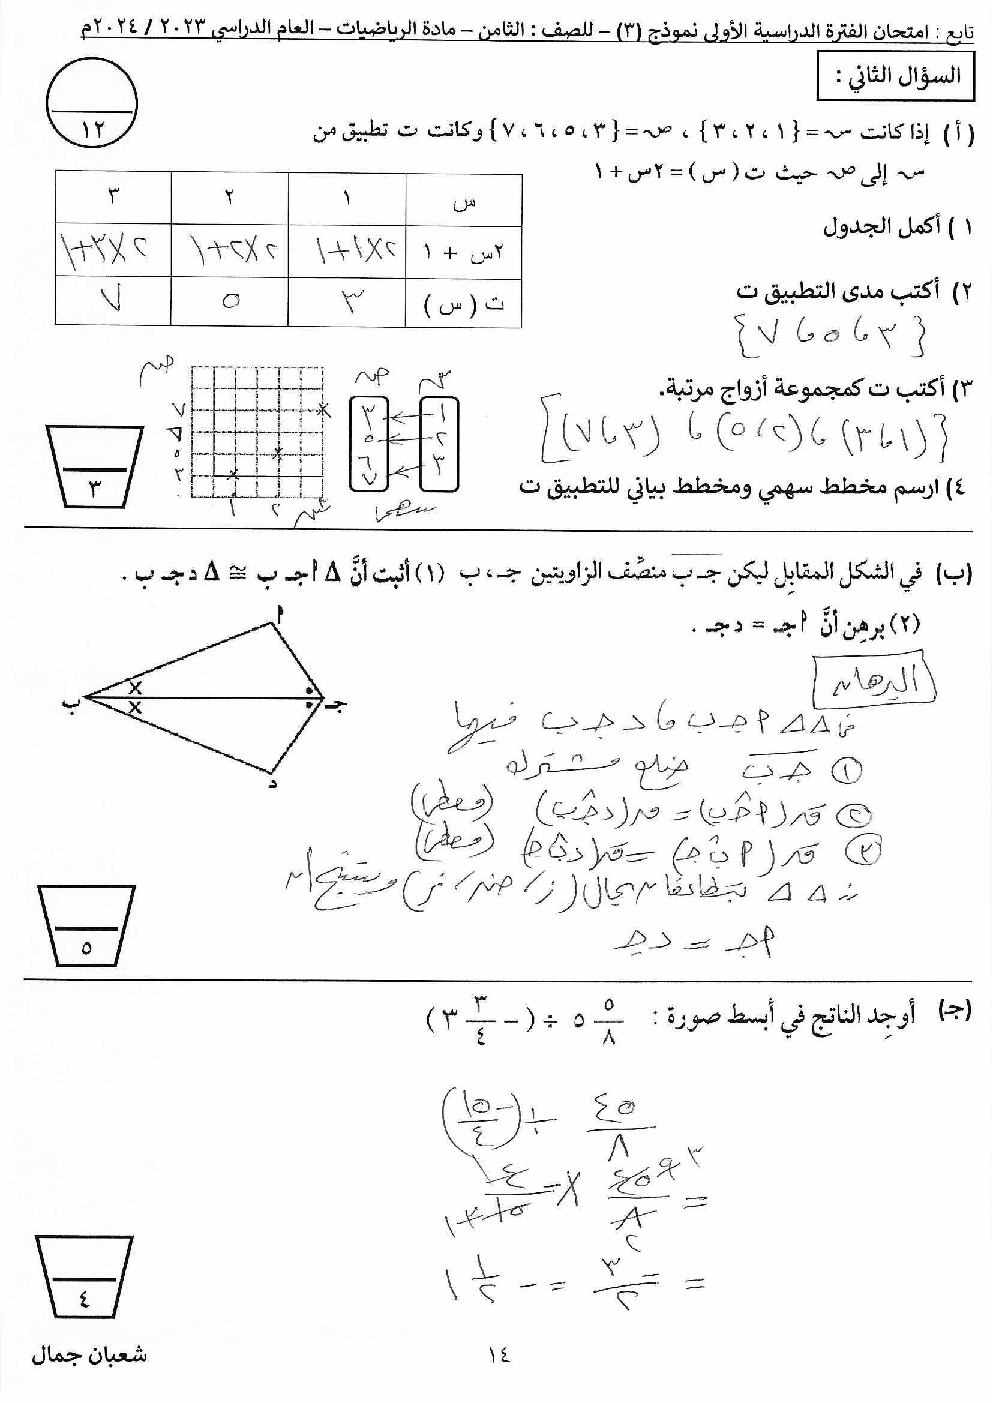 تابع : امتحان الفترة الدراسية الأولى نموذج (٣) – للصف : الثامن – مادة الرياضيات – العام الدراسي ٢٠٢٣ / ٢٠٢٤م
السؤال الثاني :
١٢
(أ) إذا كانت س = {١ ، ٢ ، ٣} ، ص = {٣ ، ٥ ، ٦ ، ٧} وكانت ت تطبيق من
س إلى ص حيث ت ( س ) = ٢س + ١
١ ) أكمل الجدول
س ١ ٢ ٣
٢س + ١ ٢×١+١ ٢×٢+١ ٢×٣+١
ت ( س ) ٣ ٥ ٧
٢) أكتب مدى التطبيق ت
{٣ ، ٥ ، ٧}
٣) أكتب ت كمجموعة أزواج مرتبة.
{(١ ، ٣) ، (٢ ، ٥) ، (٣ ، ٧)}
٤) ارسم مخطط سهمي ومخطط بياني للتطبيق ت
س ص
١ ٣
٢ ٥
٣ ٦
٧
سهمي
ص
٧
٥
٣
١ ٢ س
٣
(ب) في الشكل المقابِل ليكن جـ ب منصِّف الزاويتين جـ ، ب (١) أثبت أنَّ Δ أ جـ ب ≅ Δ د جـ ب .
(٢) برهِن أنَّ أ جـ = د جـ .
أ
ب
جـ
د
البرهان
Δ Δ أ جـ ب ، د جـ ب فيها
① جـ ب ضلع مشترك
② ق(أ جـ ب) = ق(د جـ ب) (معطى)
③ ق(أ ب جـ) = ق(د ب جـ) (معطى)
∴ Δ Δ يتطابقان بحالة (ز / ض / ز) وينتج أن
أ جـ = د جـ
٥
(جـ) أوجِد الناتج في أبسط صورة : ٥ ٥/٨ ÷ ( – ٣ ٣/٤ )
٤٥/٨ ÷ (-١٥/٤)
= ٤٥/٨ × -٤/١٥
= -٣/٢ = - ١ ١/٢
٤
١٤
شعبان جمال